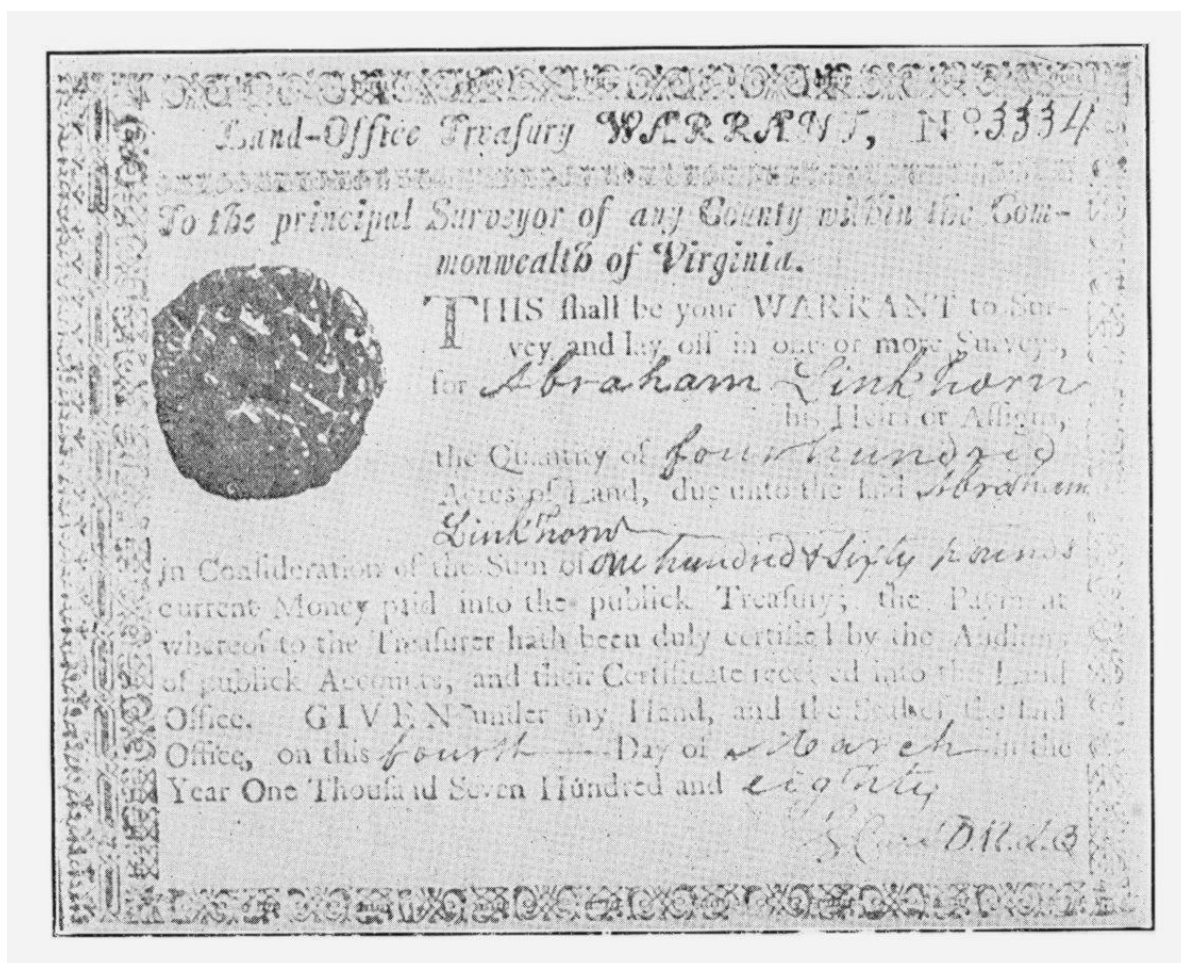 Land-Office Treaſury WARRANT, No. 3334
To the principal Surveyor of any County within the Com-
monwealth of Virginia.
THIS ſhall be your WARRANT to Sur-
vey and lay off in one or more Surveys,
for Abraham Linkhorn
his Heirs or Aſſigns,
the Quantity of four hundred
Acres of Land, due unto the ſaid Abraham
Linkhorn
in Conſideration of the Sum of one hundred & Sixty pounds
current Money paid into the publick Treaſury; the Payment
whereof to the Treaſurer hath been duly certified by the Auditors
of publick Accounts, and their Certificate received into the Land
Office. GIVEN under my Hand, and the Seal of the ſaid
Office, on this fourth Day of March in the
Year One Thouſand Seven Hundred and eighty